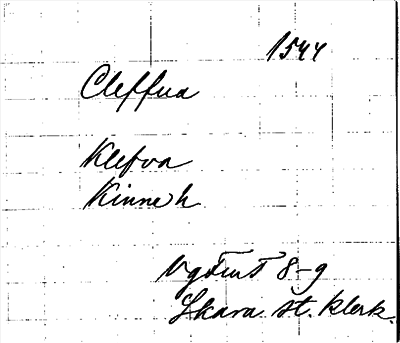 1544
Cleffua
Klefva
Kinne h
VgFmT 8-9
Skara st. klerk.